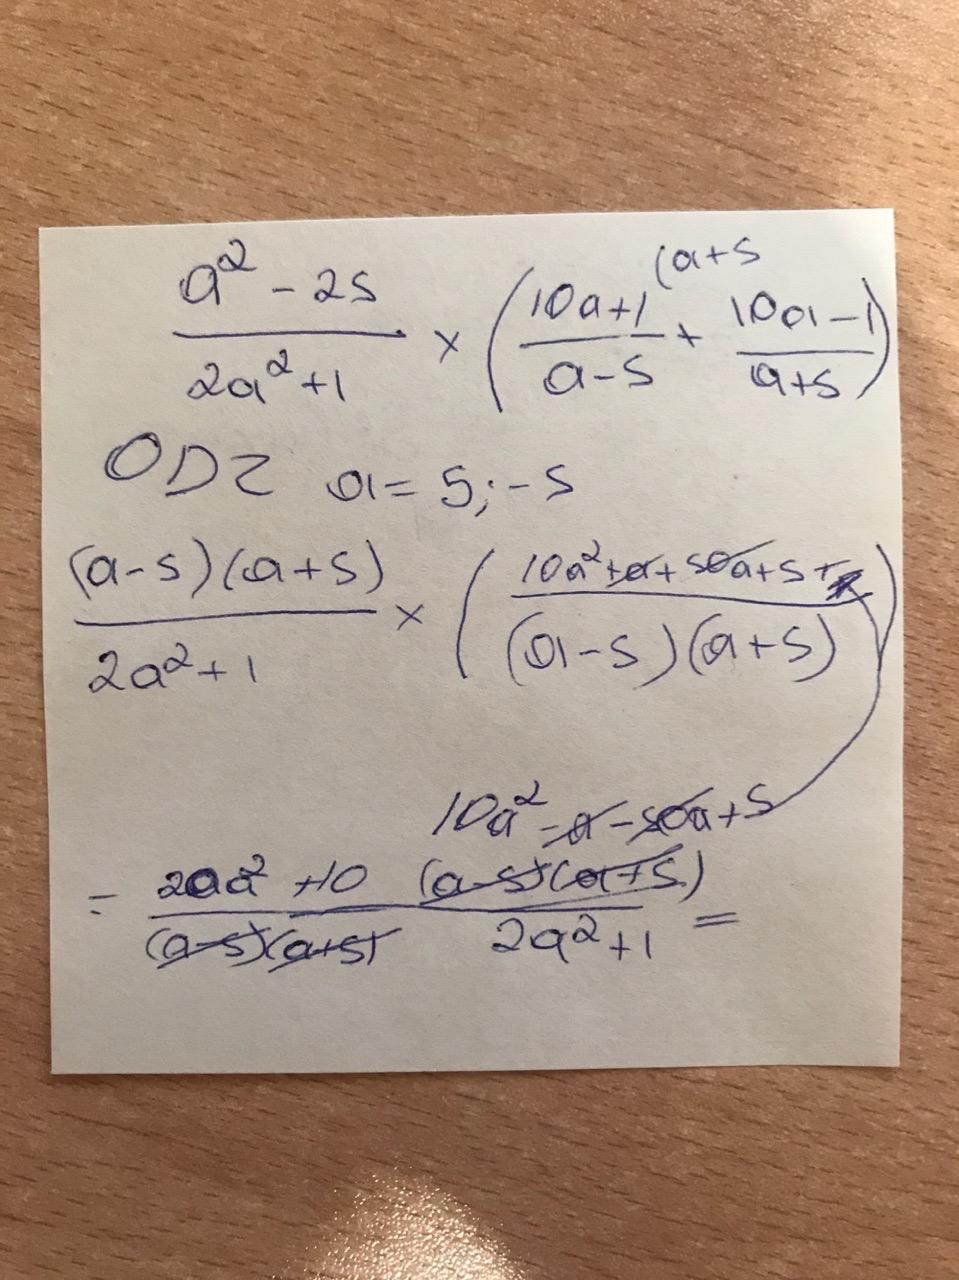 (a+5
a² - 25 / 2a² + 1 × (10a+1 / a-5 + 10a-1 / a+5)
ODZ a = 5; -5
(a-5)(a+5) / 2a² + 1 × (10a² + a + 50a + 5 + / (a-5)(a+5))
10a² - a - 50a + 5
= 20a² + 10 (a-5)(a+5) / (a-5)(a+5) 2a² + 1 =